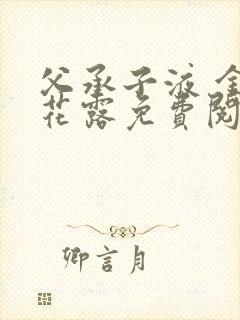 父承子液 金
花露免費閱
卿言月